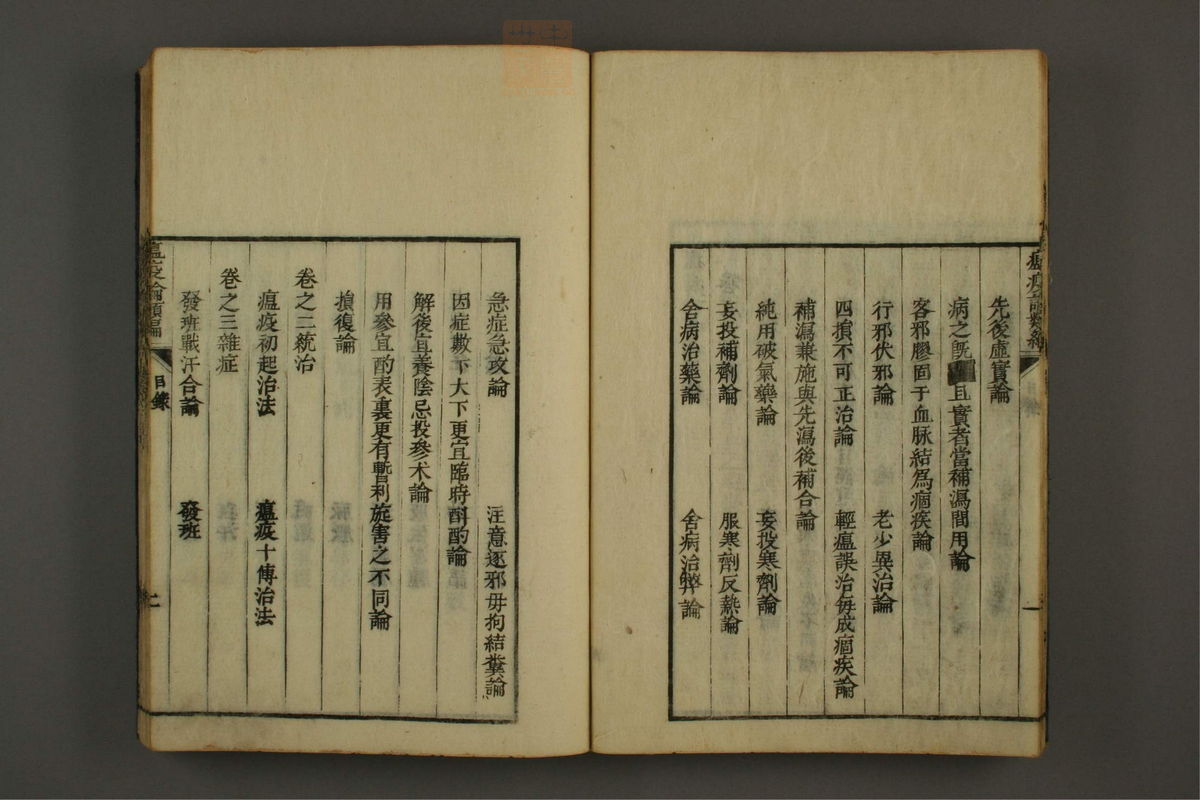 瘟疫論類編
目錄
一
先後虛實論
病之旣 且實者當補瀉間用論
客邪膠固于血脉結爲痼疾論
行邪伏邪論 老少異治論
四損不可正治論 輕瘟誤治每成痼疾論
補瀉兼施與先瀉後補合論
純用破氣藥論 妄投寒劑論
妄投補劑論 服寒劑反熱論
舍病治藥論 舍病治弊論
急症急攻論 注意逐邪毋拘結糞論
因症數下大下更宜臨時酙酌論
解後宜養陰忌投參术論
用參宜酌表裏更有暫利旋害之不同論
損復論
卷之二統治
瘟疫初起治法 瘟疫十傳治法
卷之三雜症
發班戰汗合論 發班
瘟疫論類編
目錄
二